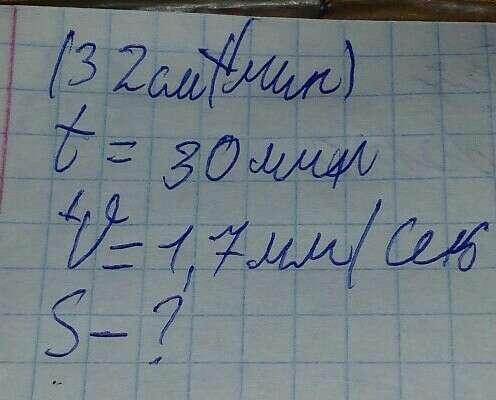 (32см/мин)
t = 30 мин
V = 1,7 мм/сек
S - ?